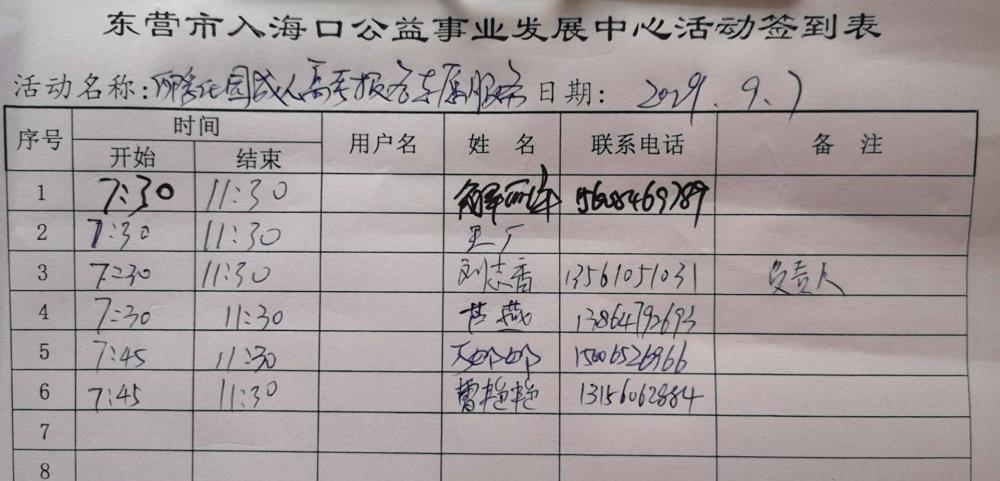 东营市入海口公益事业发展中心活动签到表
活动名称: 园成人高考报名专属服务 日期: 2024.9.7
序号 时间 用户名 姓名 联系电话 备注
开始 结束
1 7:30 11:30 15684469789
2 7:30 11:30
3 7:30 11:30 刘志香 13561051031 负责人
4 7:30 11:30 燕 13864792693
5 7:45 11:30 15006526966
6 7:45 11:30 曹艳艳 13156062884
7
8